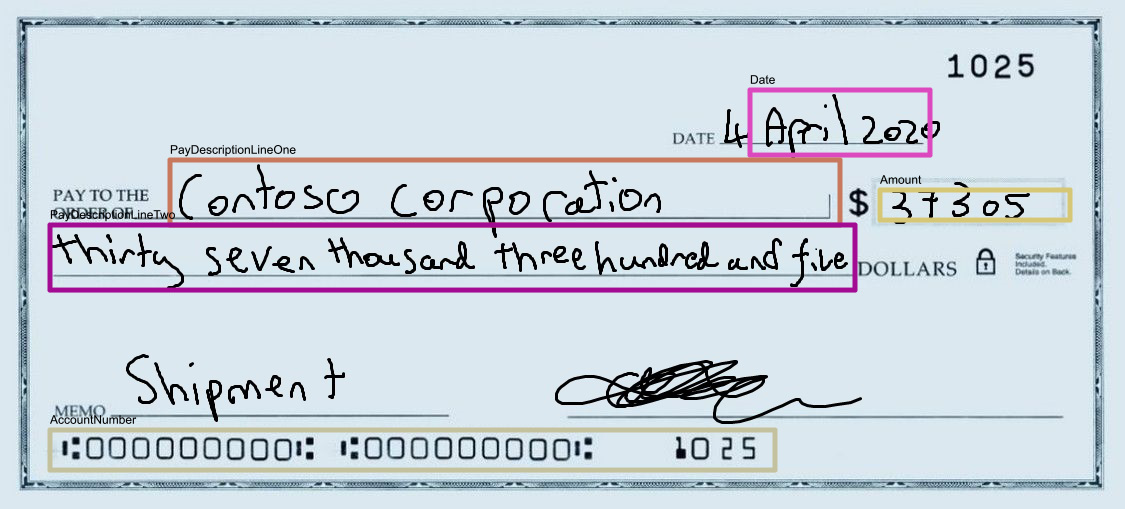 1025
Date
DATE 4 April 2020
PayDescriptionLineOne
PAY TO THE
ORDER OF Contosco corporation
Amount
$ 37305
PayDescriptionLineTwo
thirty seven thousand three hundred and five DOLLARS
Security Features
Included.
Details on Back.
MEMO Shipment
AccountNumber
⑆000000000⑆ ⑆000000000⑆ 1025